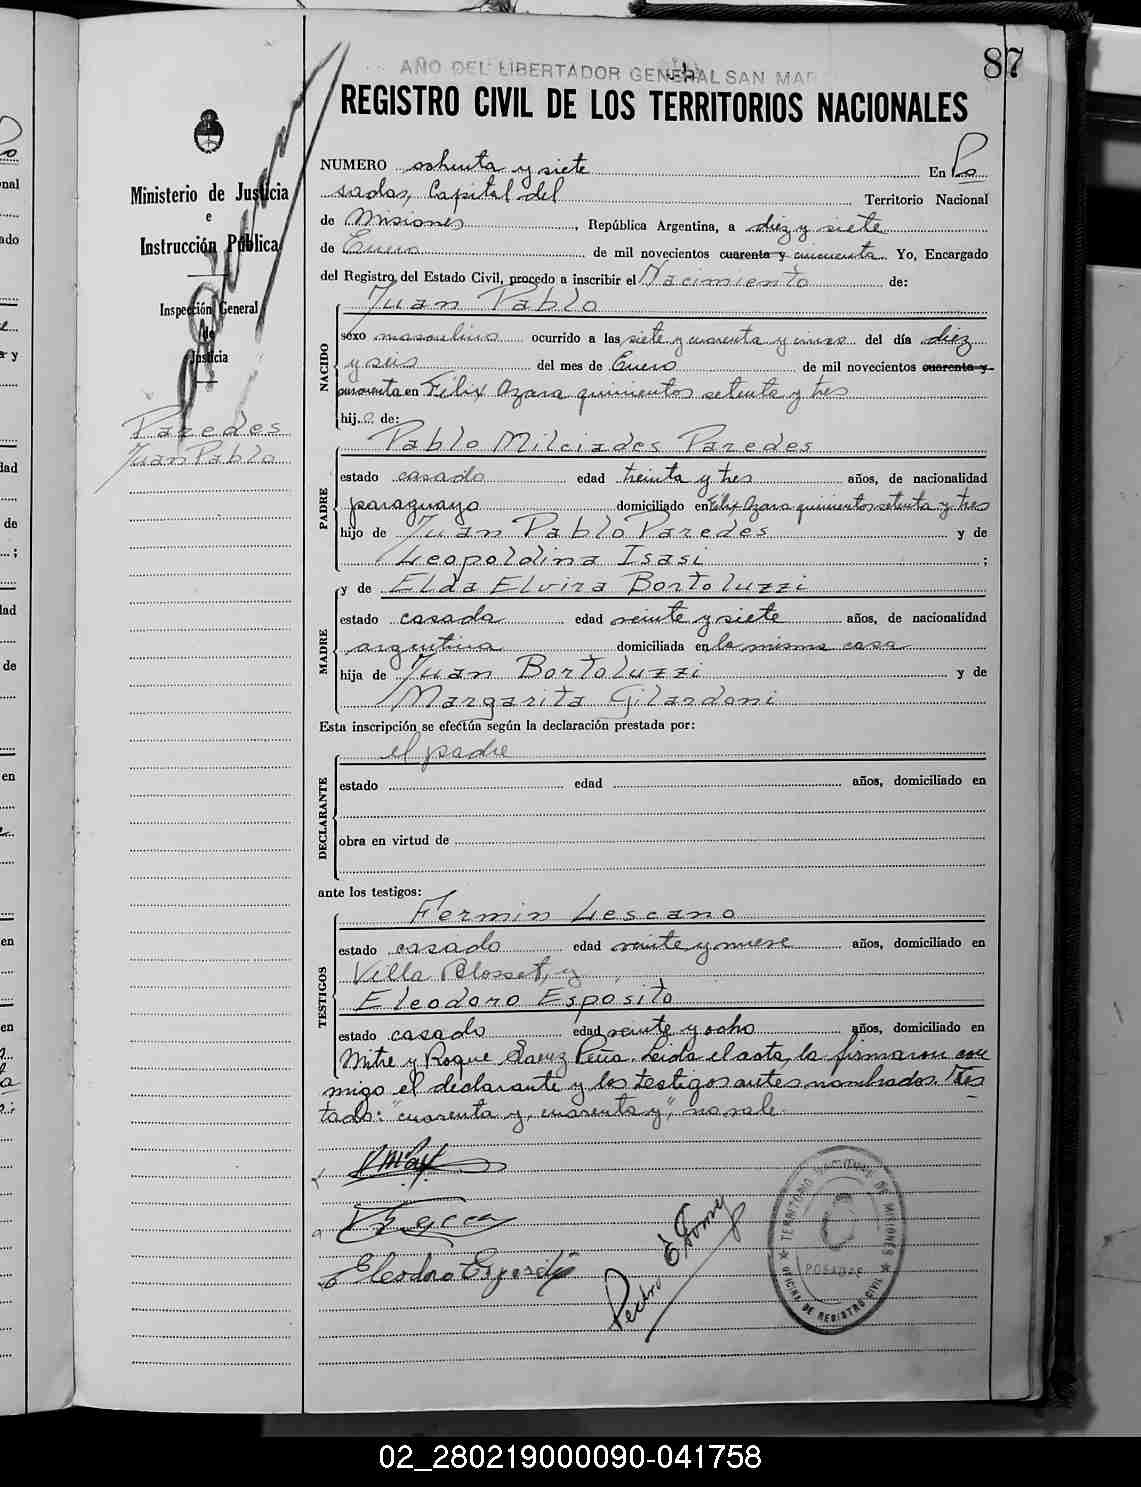 87
AÑO DEL LIBERTADOR GENERAL SAN MAR
REGISTRO CIVIL DE LOS TERRITORIOS NACIONALES
Ministerio de Justicia
e
Instrucción Pública
Inspección General
de
Justicia
Paredes
Juan Pablo
NUMERO ochenta y siete En Po
sadas, Capital del Territorio Nacional
de Misiones, República Argentina, a diez y siete
de Enero de mil novecientos cuarenta y cincuenta. Yo, Encargado
del Registro del Estado Civil, procedo a inscribir el Nacimiento de:
NACIDO
Juan Pablo
sexo masculino ocurrido a las siete y cuarenta y cinco del día diez
y seis del mes de Enero de mil novecientos cuarenta y
cincuenta en Félix Azara quinientos setenta y tres
hijo de:
PADRE
Pablo Milciades Paredes
estado casado edad treinta y tres años, de nacionalidad
paraguayo domiciliado en Félix Azara quinientos setenta y tres
hijo de Juan Pablo Paredes y de
Leopoldina Isasi ;
MADRE
y de Elda Elvira Bortoluzzi
estado casada edad veinte y siete años, de nacionalidad
argentina domiciliada en la misma casa
hija de Juan Bortoluzzi y de
Margarita Gilardoni
Esta inscripción se efectúa según la declaración prestada por:
DECLARANTE
el padre
estado edad años, domiciliado en
obra en virtud de
ante los testigos:
TESTIGOS
Fermin Lescano
estado casado edad veinte y nueve años, domiciliado en
Villa Blosset, y
Eleodoro Esposito
estado casado edad veinte y ocho años, domiciliado en
Mitre y Roque Saenz Peña. Leida el acta, la firmaron con
migo el declarante y los testigos antes nombrados. Tes
tado: "cuarenta y, cuarenta y", no vale.
Eleodoro Esposito
Pedro
TERRITORIO NACIONAL DE MISIONES
POSADAS
OFICINA DE REGISTRO CIVIL
02_280219000090-041758